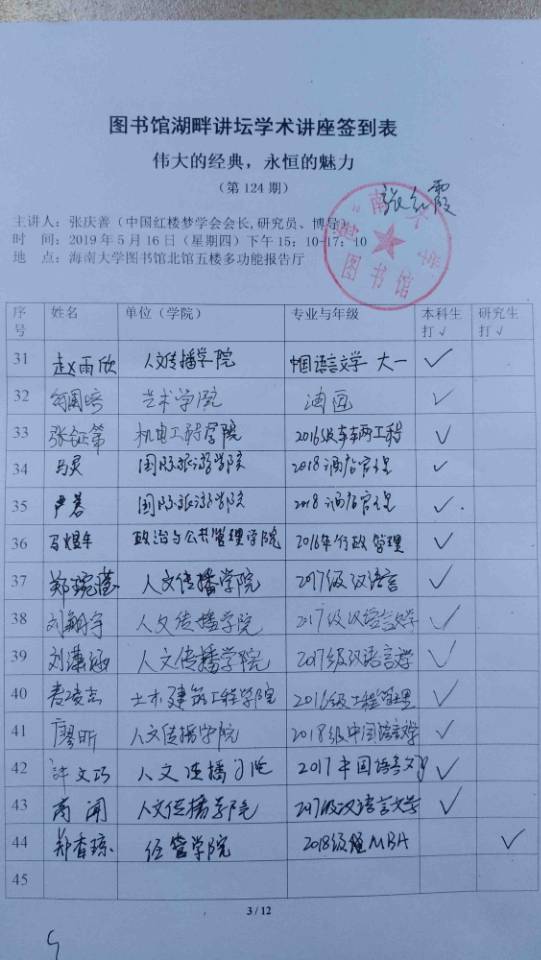 图书馆湖畔讲坛学术讲座签到表
伟大的经典，永恒的魅力
（第 124 期）
张红霞
南 大
图书馆
主讲人：张庆善（中国红楼梦学会会长,研究员、博导）
时 间：2019 年 5 月 16 日（星期四）下午 15：10-17：10
地 点：海南大学图书馆北馆五楼多功能报告厅
序号 姓名 单位（学院） 专业与年级 本科生打√ 研究生打√
31 赵雨欣 人文传播学院 中国语言文学 大一 √
32 艺术学院 油画 √
33 张钲第 机电工程学院 2016级车辆工程 √
34 马灵 国际旅游学院 2018 酒店管理 √
35 国际旅游学院 2018 酒店管理 √
36 马煜年 政治与公共管理学院 2016年行政管理 √
37 郑琬莹 人文传播学院 2017级汉语言 √
38 刘翰宇 人文传播学院 2017级汉语言文学 √
39 刘潇涵 人文传播学院 2017级汉语言文学 √
40 麦凌志 土木建筑工程学院 2016级工程管理 √
41 廖昕 人文传播学院 2018级中国语言文学 √
42 许文巧 人文传播学院 2017 中国语言文学 √
43 人文传播学院 2017级汉语言文学 √
44 郑香琼 经管学院 2018级 MBA √
45
3 / 12